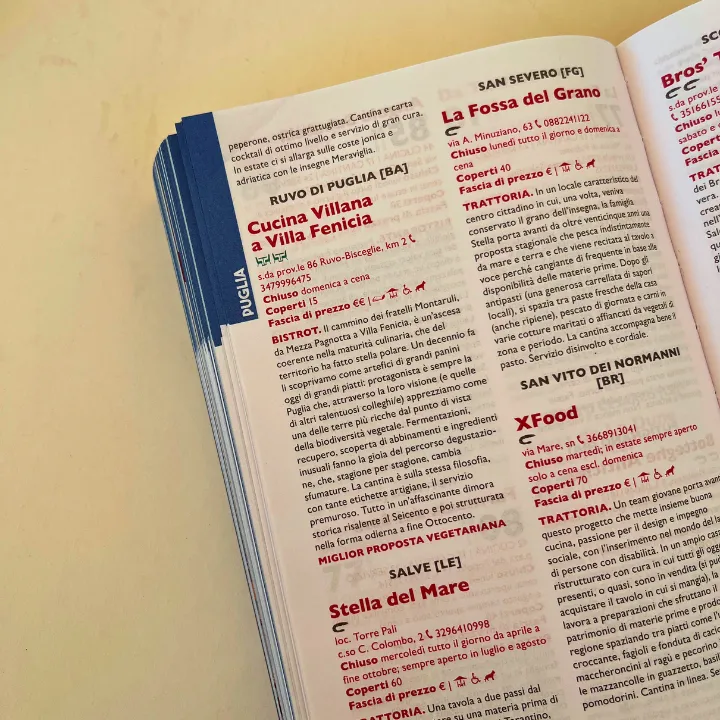 PUGLIA
peperone, ostrica grattugiata. Cantina e carta
cocktail di ottimo livello e servizio di gran cura.
In estate ci si allarga sulle coste jonica e
adriatica con le insegne Meraviglia.
RUVO DI PUGLIA [BA]
Cucina Villana
a Villa Fenicia
s.da prov.le 86 Ruvo-Bisceglie, km 2
3479996475
Chiuso domenica a cena
Coperti 15
Fascia di prezzo €€ |
BISTROT. Il cammino dei fratelli Montaruli,
da Mezza Pagnotta a Villa Fenicia, è un'ascesa
coerente nella maturità culinaria, che del
territorio ha fatto stella polare. Un decennio fa
li scoprivamo come artefici di grandi panini
oggi di grandi piatti: protagonista è sempre la
Puglia che, attraverso la loro visione (e quelle
di altri talentuosi colleghi/e) apprezziamo come
una delle terre più ricche dal punto di vista
della biodiversità vegetale. Fermentazioni,
recupero, scoperta di abbinamenti e ingredienti
inusuali fanno la gioia del percorso degustazio-
ne, che, stagione per stagione, cambia
sfumature. La cantina è sulla stessa filosofia,
con tante etichette artigiane, il servizio
premuroso. Tutto in un'affascinante dimora
storica risalente al Seicento e poi strutturata
nella forma odierna a fine Ottocento.
MIGLIOR PROPOSTA VEGETARIANA
SALVE [LE]
Stella del Mare
loc. Torre Pali
c.so C. Colombo, 2 3296410998
Chiuso mercoledì tutto il giorno da aprile a
fine ottobre; sempre aperto in luglio e agosto
Coperti 60
Fascia di prezzo € |
TRATTORIA. Una tavola a due passi dal
su una materia prima di
Taranto,
SAN SEVERO [FG]
La Fossa del Grano
via A. Minuziano, 63 0882241122
Chiuso lunedì tutto il giorno e domenica a
cena
Coperti 40
Fascia di prezzo € |
TRATTORIA. In un locale caratteristico del
centro cittadino in cui, una volta, veniva
conservato il grano dell'insegna, la famiglia
Stella porta avanti da oltre venticinque anni una
proposta stagionale che pesca indistintamente
da mare e terra e che viene recitata al tavolo a
voce perché cangiante di frequente in base alle
disponibilità delle materie prime. Dopo gli
antipasti (una generosa carrellata di sapori
locali), si spazia tra paste fresche della casa
(anche ripiene), pescato di giornata e carni in
varie cotture maritati o affiancati da vegetali di
zona e periodo. La cantina accompagna bene il
pasto. Servizio disinvolto e cordiale.
SAN VITO DEI NORMANNI
[BR]
XFood
via Mare, sn 3668913041
Chiuso martedì; in estate sempre aperto
solo a cena escl. domenica
Coperti 70
Fascia di prezzo € |
TRATTORIA. Un team giovane porta avanti
questo progetto che mette insieme buona
cucina, passione per il design e impegno
sociale, con l'inserimento nel mondo del
di persone con disabilità. In un ampio
ristrutturato con cura in cui tutti gli
presenti, o quasi, sono in vendita (si può
acquistare il tavolo in cui si mangia), la
lavora a preparazioni che sfruttano il
patrimonio di materie prime e
regione spaziando tra piatti come
croccante, fagioli e fonduta di
maccheroncini al ragù e pecorino
le mazzancolle in guazzetto,
pomodorini. Cantina in linea.
Bros'
s.da prov.le
Chiuso
sabato e
Coperti
Fascia
dei
vera.